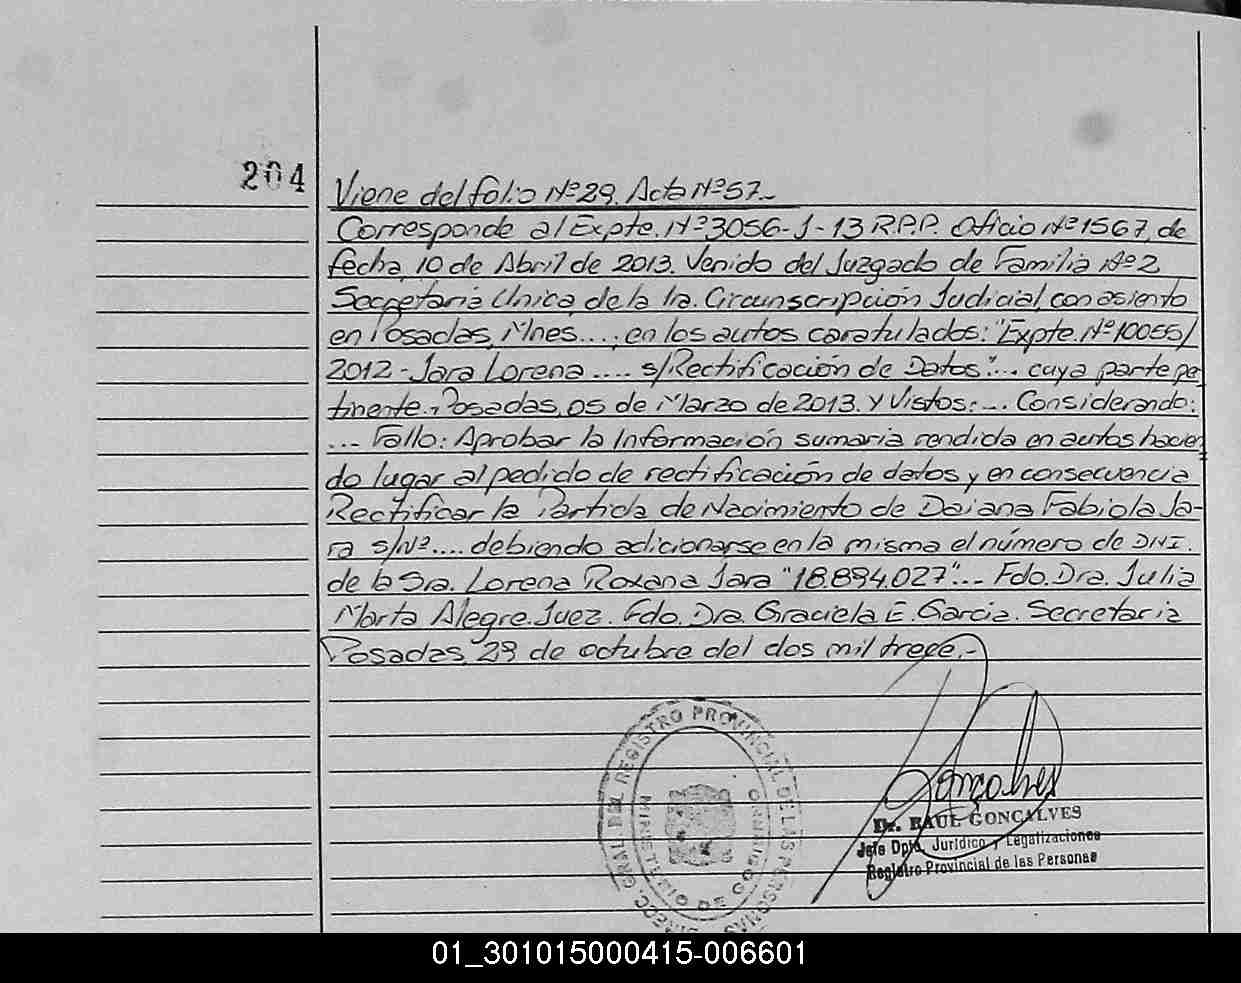 204
Viene del folio Nº29. Acta Nº57.-
Corresponde al Expte. Nº3056-J-13 R.P.P. Oficio Nº1567, de
fecha, 10 de Abril de 2013. Venido del Juzgado de Familia Nº2
Secretaría Única, de la 1ra. Circunscripción Judicial, con asiento
en Posadas, Mnes....; en los autos caratulados: "Expte. Nº10055/
2012-Jara Lorena .... s/Rectificación de Datos"... cuya parte pe
tinente. Posadas, 05 de Marzo de 2013. Y Vistos:... Considerando:
... Fallo: Aprobar la Información sumaria rendida en autos hacien
do lugar al pedido de rectificación de datos y en consecuencia
Rectificar la Partida de Nacimiento de Daiana Fabiola Ja-
ra s/Nº.... debiendo adicionarse en la misma el número de DNI.
de la Sra. Lorena Roxana Jara "18.894.027"... Fdo. Dra. Julia
Marta Alegre. Juez. Fdo. Dra. Graciela E. Garcia. Secretaria
Posadas, 29 de octubre del dos mil trece.-
DIRECC GRAL DEL REGISTRO PROVINCIAL DE LAS PERSONAS
MINISTERIO DE GOBIERNO
Goncalves
Dr. RAUL GONCALVES
Jefe Dpto. Jurídico y Legalizaciones
Registro Provincial de las Personas
01_301015000415-006601